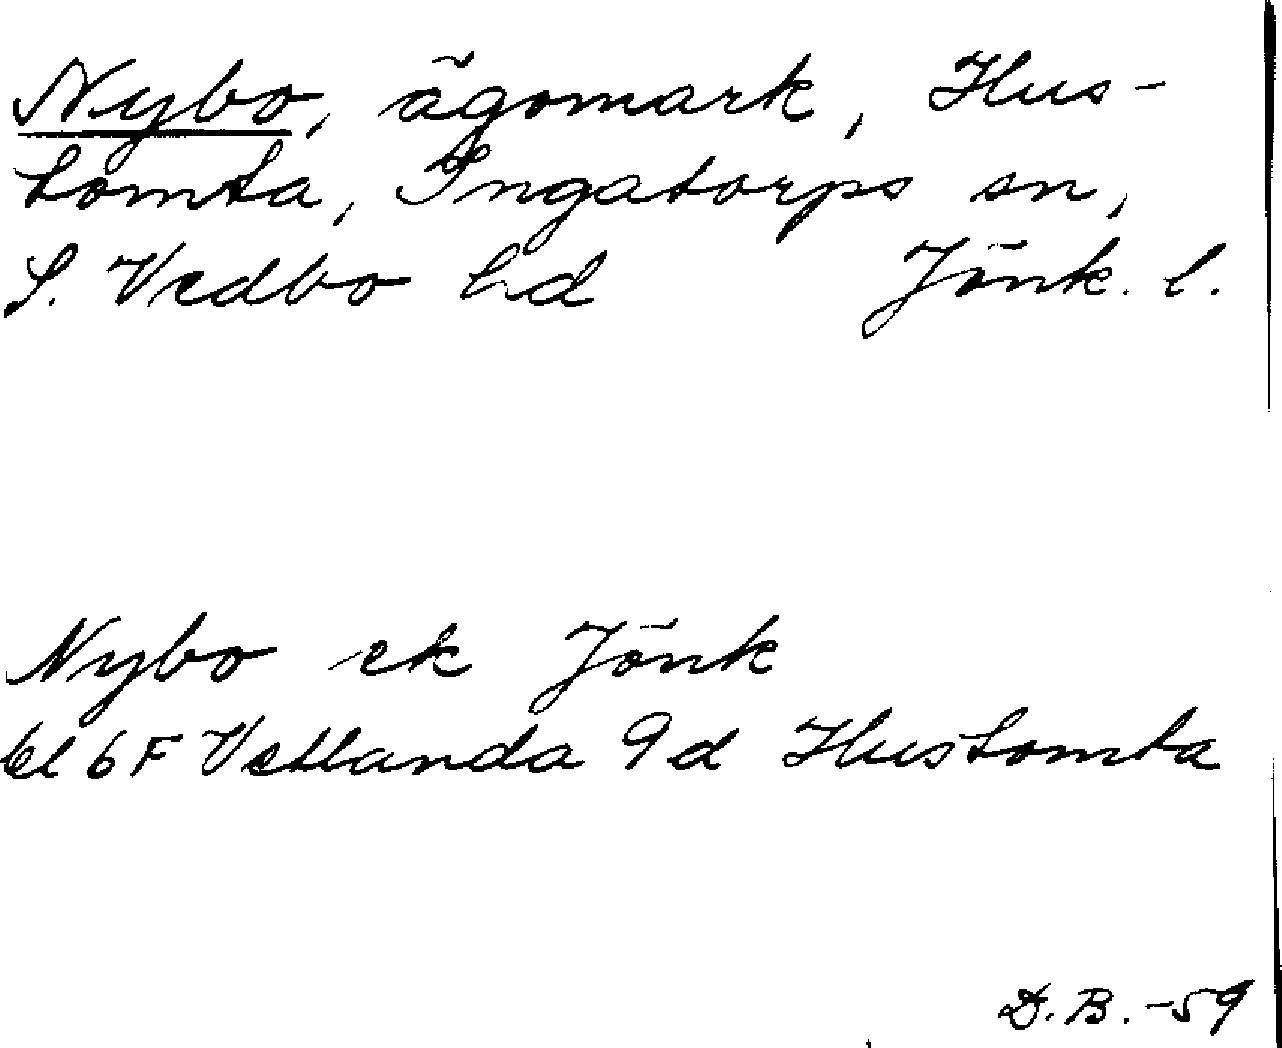 Nybo, ägomark, Hus-
tomta, Ingatorps sn,
S. Vedbo hd Jönk. l.
Nybo ek Jönk
bl 6F Vetlanda 9d Hustomta
D.B. -59